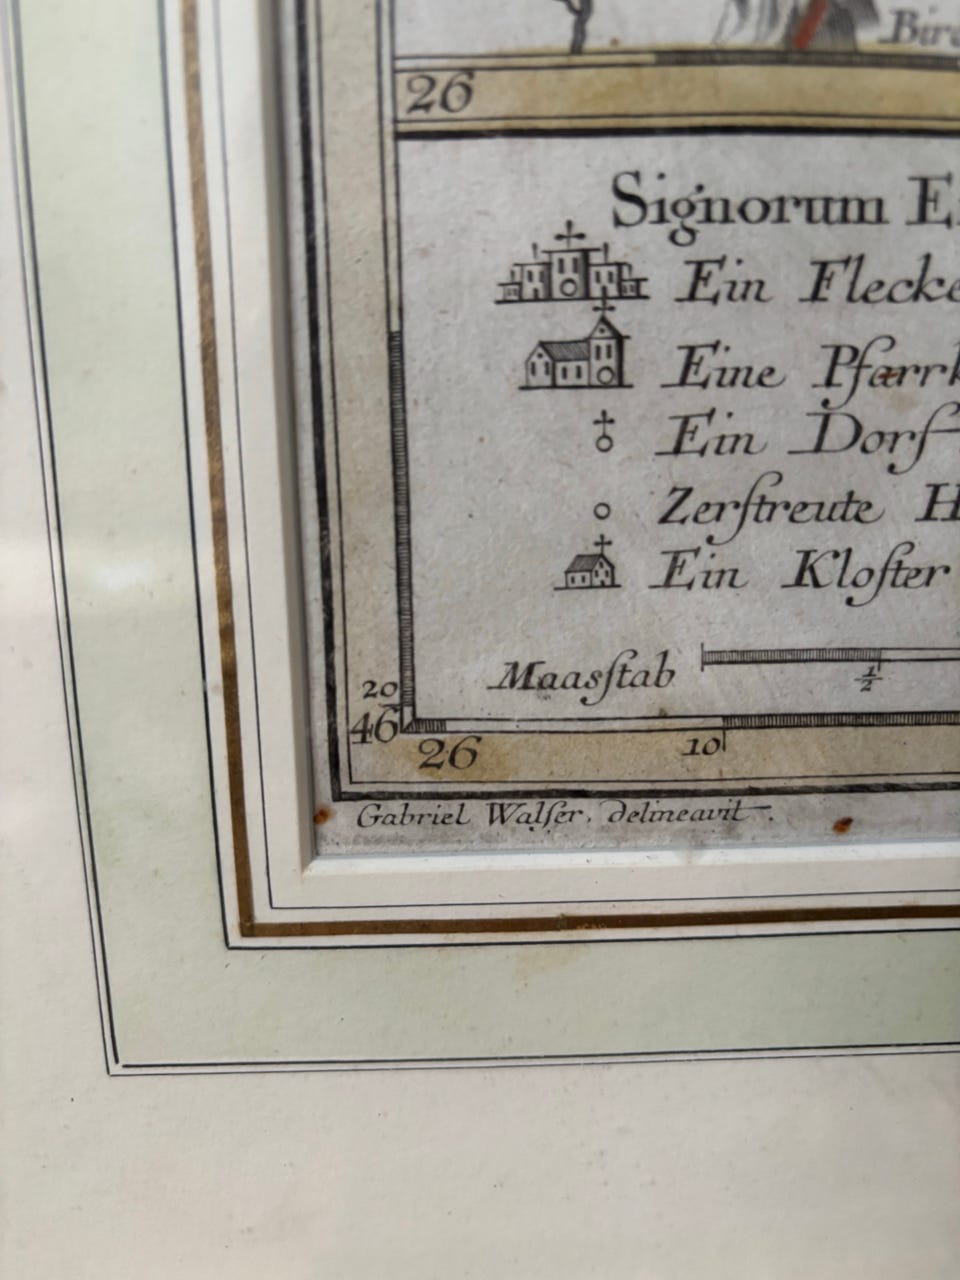 Birc
26
Signorum E
Ein Flecke
Eine Pfarrk
Ein Dorf
Zerſtreute H
Ein Kloſter
Maasſtab
1/2
20
46
26
10
Gabriel Walſer, delineavit.